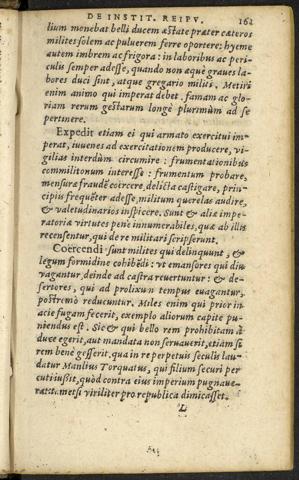 DE INSTIT. REIPV. 162
lium monebat belli ducem æstate præter cæteros
milites solem ac puluerem ferre oportere; hyeme
autem imbrem ac frigora: in laboribus ac peri-
culis semper adesse, quando non æquè graues la-
bores duci sint, atque gregario militi. Metiri
enim animo qui imperat debet, famam ac glo-
riam rerum gestarum longè plurimùm ad se
pertinere.
Expedit etiam ei qui armato exercitui im-
perat, iuuenes ad exercitationem producere, vi-
gilias interdùm circumire: frumentationibus
commilitonum interesse: frumentum probare,
mensuræ fraudē coercere, delicta castigare, prin-
cipiis frequēter adesse, militum querelas audire,
& valetudinarios inspicere. Sunt & aliæ impe-
ratoria virtutes penè innumerabiles, quæ ab illis
recensentur, qui de re militari scripserunt.
Coercendi sunt milites qui delinquunt, &
legum formidine cohibēdi: vt emansores qui diu
vagantur, deinde ad castra reuertuntur: & de-
sertores, qui ad prolixum tempus euagantur,
postremò reducuntur. Miles enim qui prior in
acie fugam fecerit, exemplo aliorum capite pu-
niendus est. Sic & qui bello rem prohibitam à
duce egerit, aut mandata non seruauerit, etiam si
rem benè gesserit, qua in re perpetuis seculis lau-
datur Manlius Torquatus, qui filium securi per
cuti iußit, quòd contra eius imperium pugnaue-
rat: tametsi viriliter pro republica dimicasset.
L